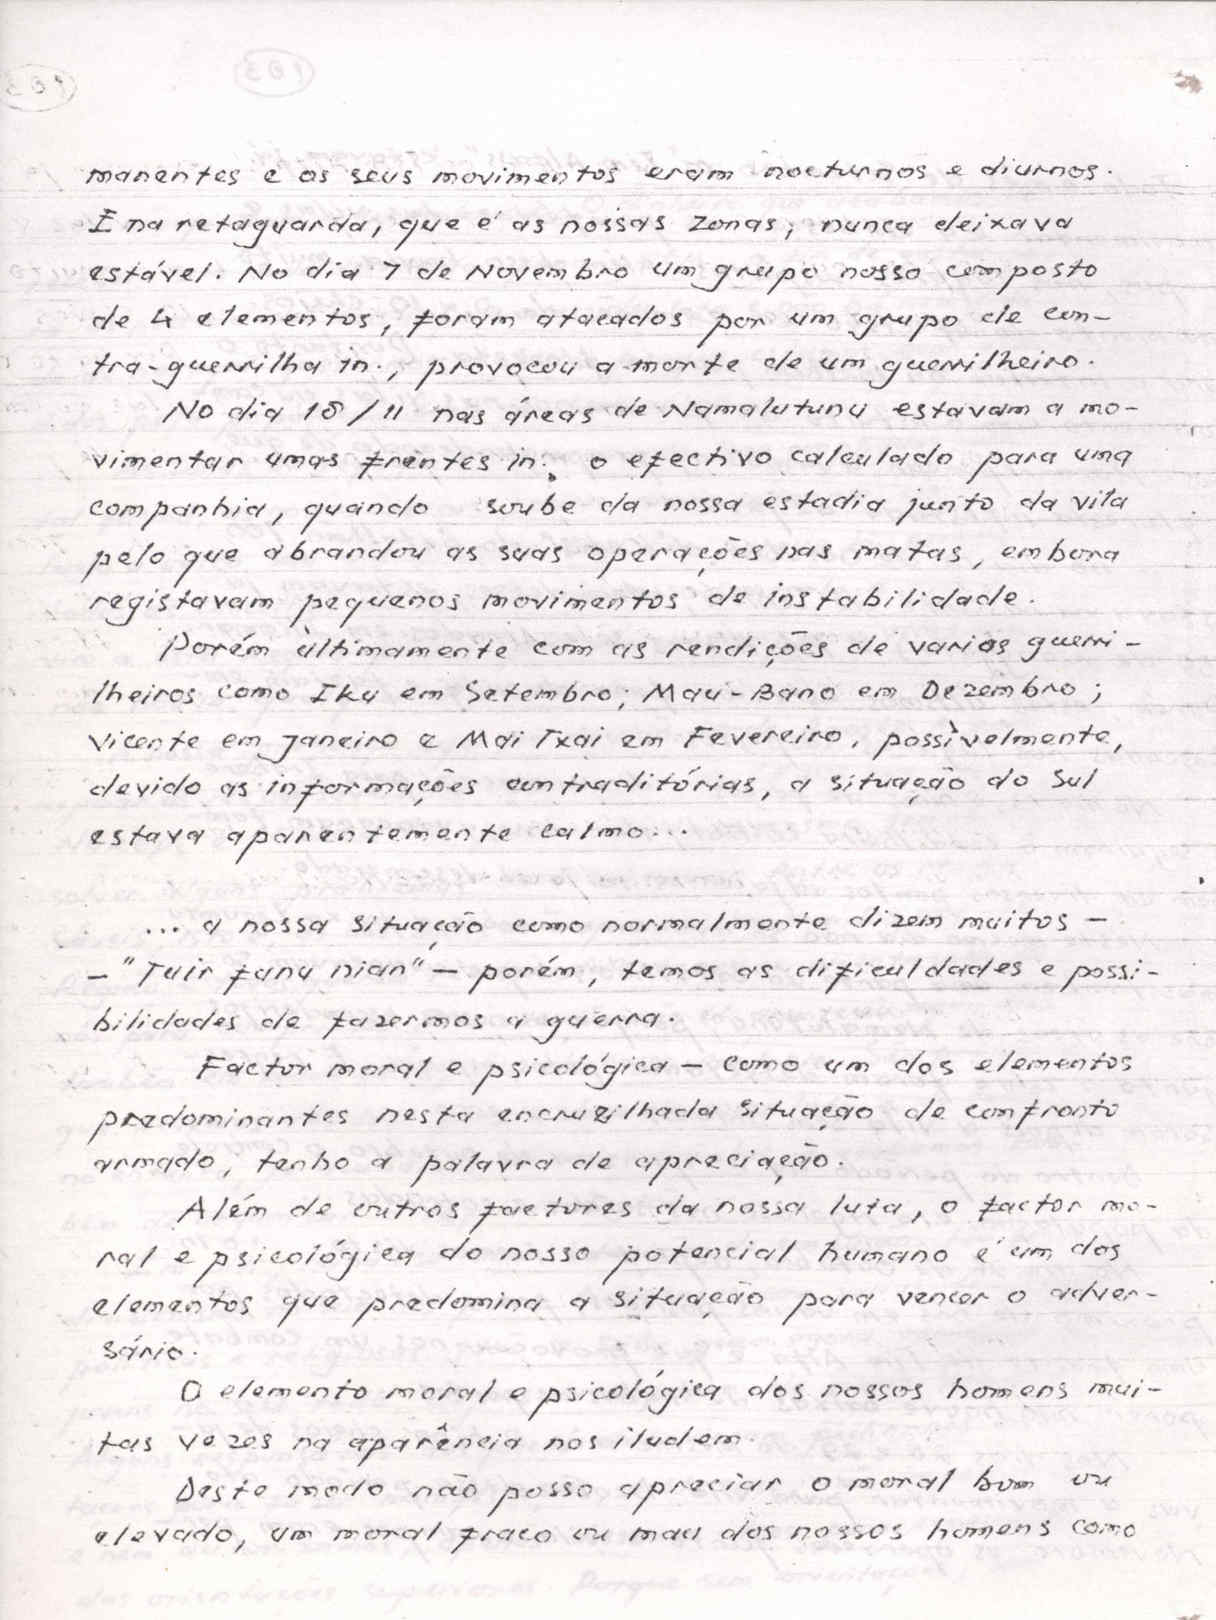 manentes e os seus movimentos eram nocturnos e diurnos.
E na retaguarda, que é as nossas zonas, nunca deixava
estável. No dia 7 de Novembro um grupo nosso composto
de 4 elementos, foram atacados por um grupo de con-
tra-guerrilha in., provocou a morte de um guerrilheiro.
No dia 18/11 nas áreas de Namalutunu estavam a mo-
vimentar umas frentes in., o efectivo calculado para uma
companhia, quando soube da nossa estadia junto da vila
pelo que abrandou as suas operações nas matas, embora
registavam pequenos movimentos de instabilidade.
Porém ùltimamente com as rendições de varios guerri-
lheiros como Iku em Setembro; Mau-Bano em Dezembro;
Vicente em Janeiro e Mai Txai em Fevereiro, possìvelmente,
devido as informações contraditórias, a situação do Sul
estava aparentemente calmo...
... a nossa situação como normalmente dizem muitos —
— "Tuir funu nian" — porém, temos as dificuldades e possi-
bilidades de fazermos a guerra.
Factor moral e psicológica — como um dos elementos
predominantes nesta encruzilhada situação de confronto
armado, tenho a palavra de apreciação.
Além de outros factores da nossa luta, o factor mo-
ral e psicológica do nosso potencial humano é um dos
elementos que predomina a situação para vencer o adver-
sário.
O elemento moral e psicológica dos nossos homens mui-
tas vezes na aparência nos iludem.
Deste modo não posso apreciar o moral bom ou
elevado, um moral fraco ou mau dos nossos homens como